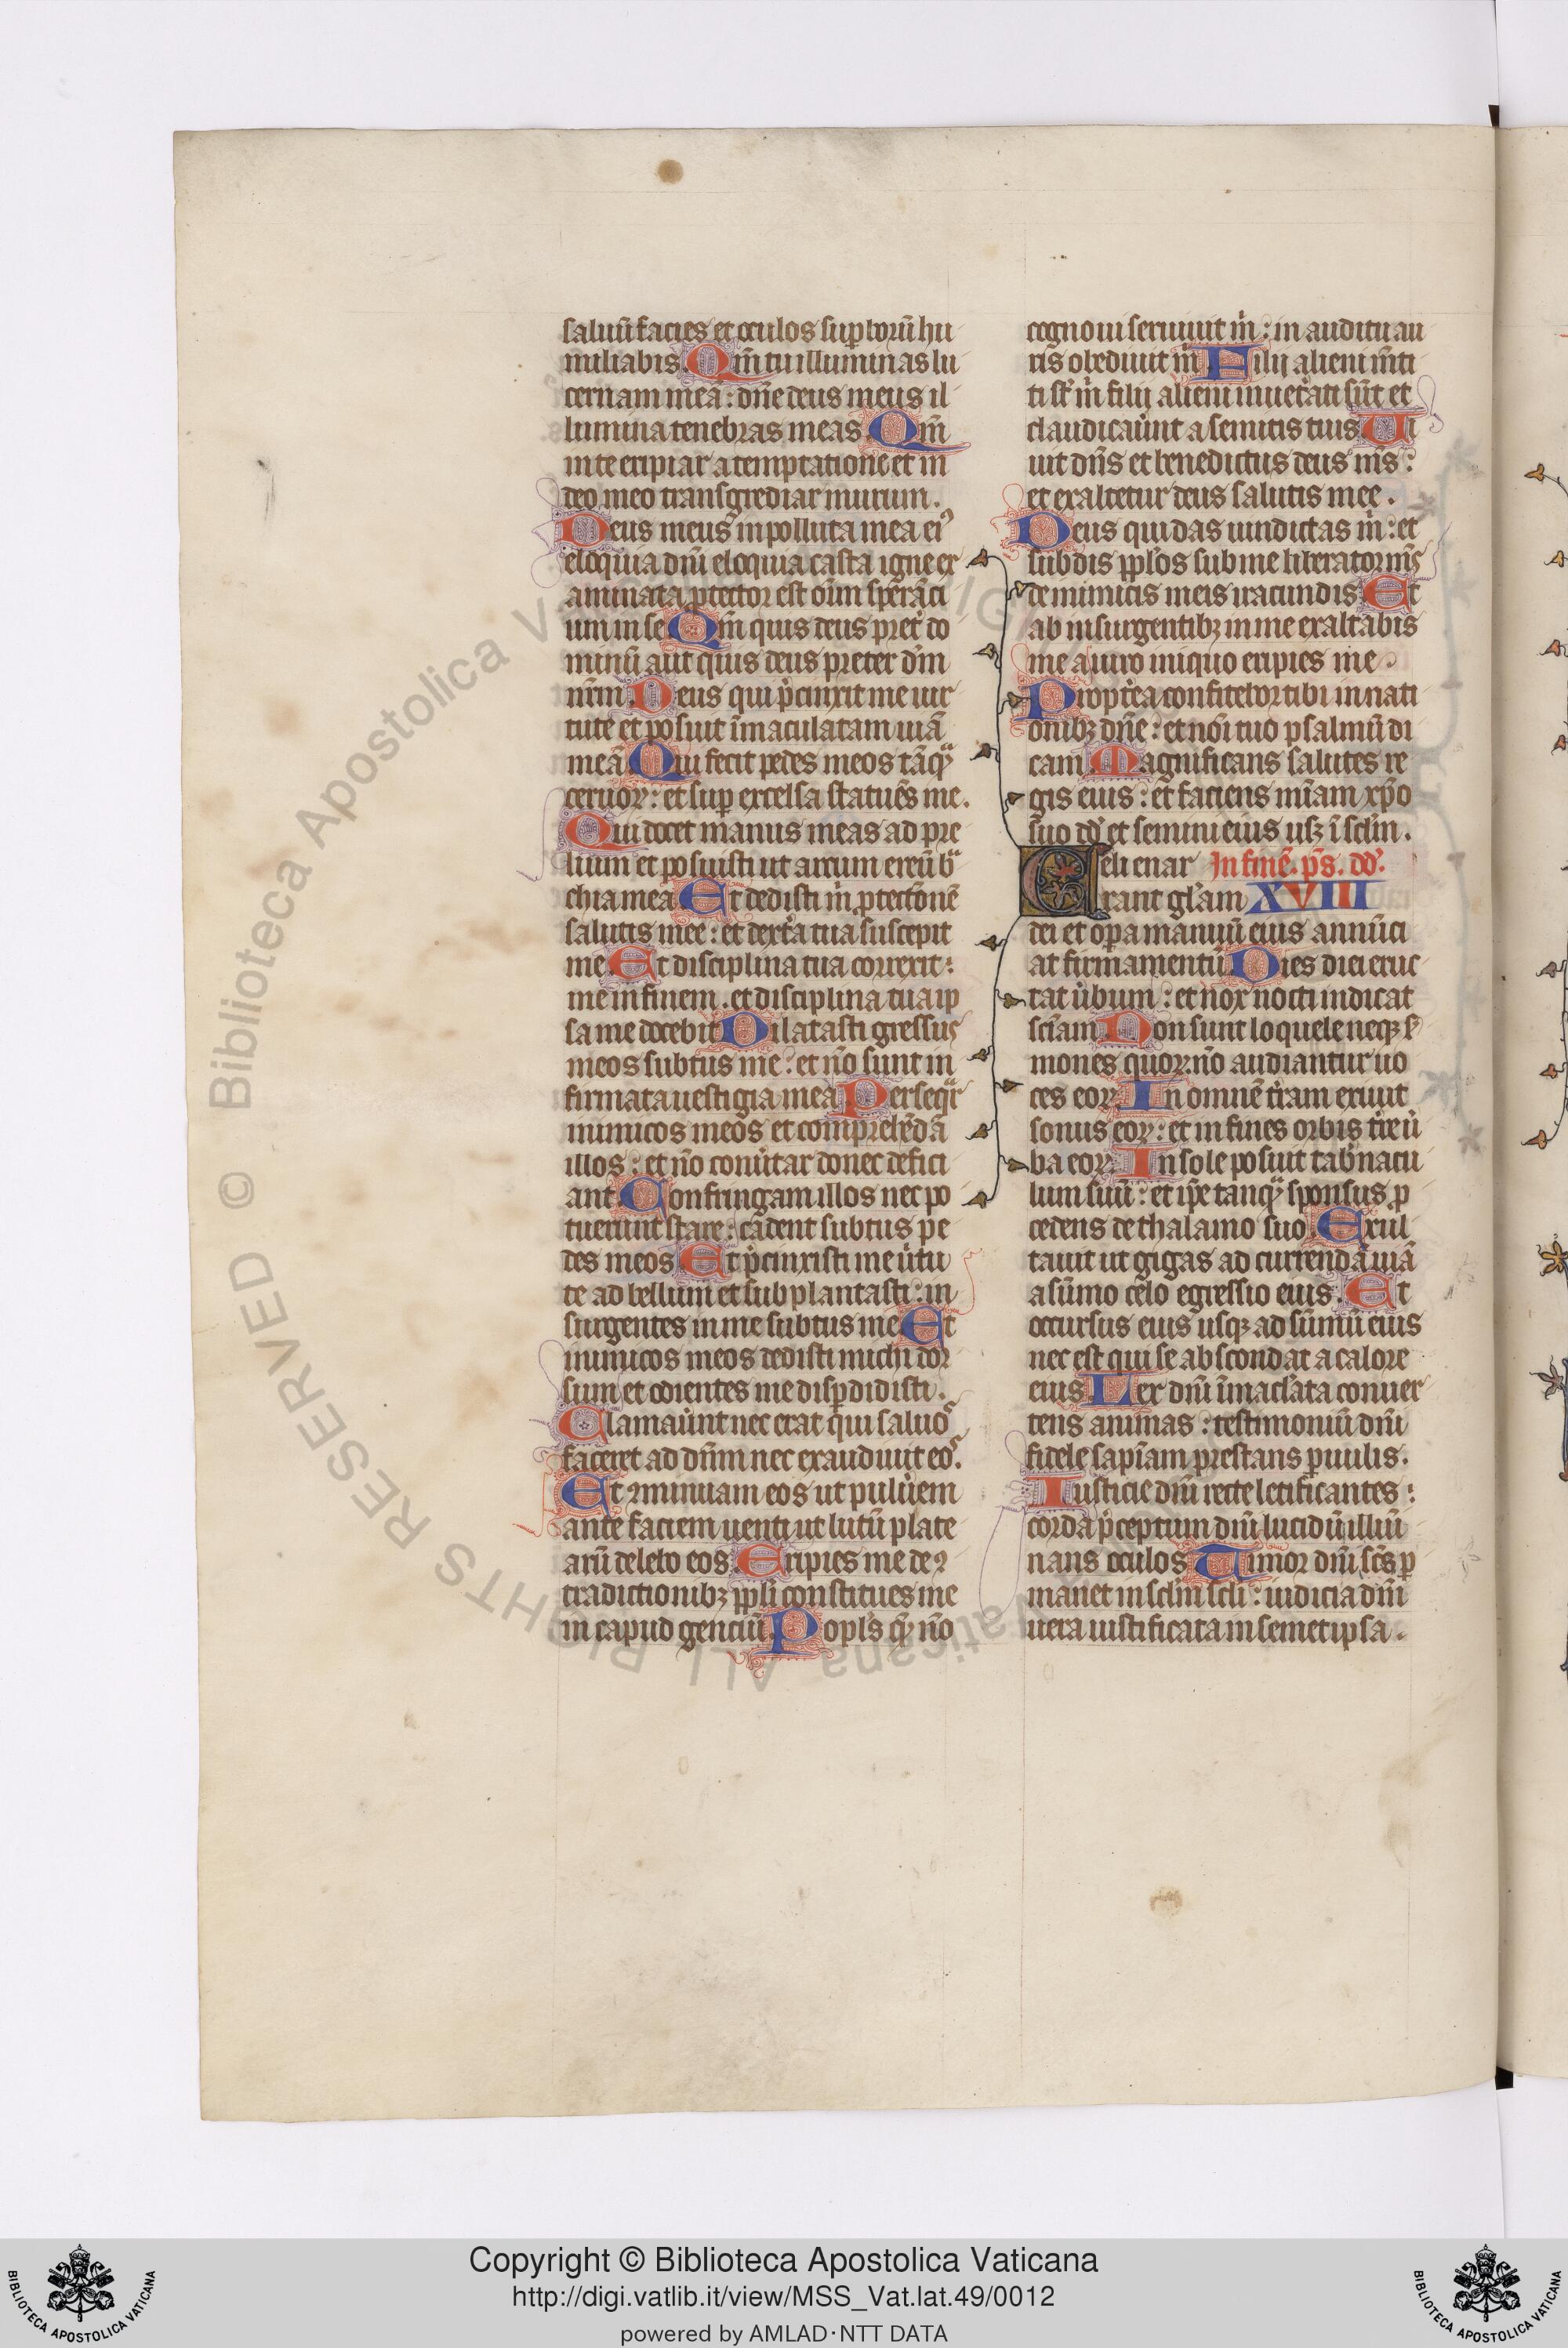 saluū facies et oculos suꝑborū hu
miliabis. Qm̄ tu illuminas lu
cernam meā : dn̄e deus meus il
lumina tenebras meas Qm̄
in te eripiar a temptatione et in
deo meo transgrediar murum.
Deus meus inpolluta uia eiꝰ
eloquia dn̄i eloquia casta igne ex
aminata ꝓtector est oīm sperāci
um in se Qm̄ quis deus pret̉ do
minū aut quis deus preter dm̄
nr̄m Deus qui p̄cinxit me uir
tute et posuit īmaculatam uiā
meā Qui fecit pedes meos tāqᷓ
ceruoꝝ : et suꝑ excelsa statuēs me.
Qui docet manus meas ad pre
lium et posuisti ut arcum ereū bᷓ
chia mea Et dedisti m̉ ꝓtectōnē
salutis mee : et dext̉a tua suscepit
me Et disciplina tua correxit :
me in finem . et disciplina tua ip
sa me docebit Dilatasti gressus
meos subtus me : et nō sunt in
firmata uestigia mea Perseqᷓr
inimicos meos et comprehēdā
illos : et nō conuertar donec defici
ant Confringam illos nec po
tuerunt stare : cadent subtus pe
des meos Et p̄cinxisti me u̓tu
te ad bellum et subplantasti : in
surgentes in me subtus me Et
inimicos meos dedisti michi dor
sum et odientes me disꝑdidisti.
Clamauer̄nt nec erat qui saluos
faceret ad dn̄m nec exaudiuit eos.
Et ꝯminuam eos ut pulu̓em
ante faciem uenti ut lutū plate
arū delebo eos Eripies me de ꝯ
tradictionibꝫ ppl̄i constitues me
in capud genciū Popl̄s qᷓ nō
cognoui seruiuit m̉ : in auditu au
ris obediuit m̉ Filij alieni m̄ti
ti st̄ m̉ filij alieni inuet̉ati sūt et
claudicauer̄nt a semitis tuis Ui
uit dn̄s et benedictus deus ms̄ :
et exaltetur deus salutis mee .
Deus qui das uindictas m̉ : et
subdis ppl̄os sub me liberator ms̄
de inimicis meis iracundis Et
ab insurgentibꝫ in me exaltabis
me a uiro iniquo eripies me .
Propt̉ea confitebor tibi in nati
onibꝫ dn̄e : et noī tuo psalmū di
cam Magnificans salutes re
gis eius : et faciens mīam xp̄o
suo dd̄ et semini eius usꝫ ī sclm̄.
Celi enar In finē. ps̄. dd̄.
rant gl̄am XVIII
dei et oꝑa manuū eius annūci
at firmamentū Dies diei eruc
tat u̓bum : et nox nocti indicat
sciām Non sunt loquele neqꝫ s̄
mones quoꝝ nō audiantur uo
ces eoꝝ In omnē t̉ram exiuit
sonus eoꝝ : et in fines orbis t̉re u̓
ba eoꝝ In sole posuit tab̉nacu
lum suū : et ip̄e tanqᷓ sponsus ꝓ
cedens de thalamo suo Exul
tauit ut gigas ad currendā uiā
a sūmo celo egressio eius. Et
occursus eius usqꝫ ad sūmū eius
nec est qui se abscondat a calore
eius Lex dn̄i īmacl̄ata conuer
tens animas : testimoniū dn̄i
fidele sapīam prestans ꝑuulis.
Iusticie dn̄i recte letificantes :
corda p̄ceptum dn̄i lucidū illūi
nans oculos Timor dn̄i scs̄ ꝑ
manet in sclm̄ scl̄i : iudicia dn̄i
uera iustificata in semetipsa .
© Biblioteca Apostolica Vaticana ALL RIGHTS RESERVED
BIBLIOTECA APOSTOLICA VATICANA
Copyright © Biblioteca Apostolica Vaticana
http://digi.vatlib.it/view/MSS_Vat.lat.49/0012
powered by AMLAD·NTT DATA
BIBLIOTECA APOSTOLICA VATICANA